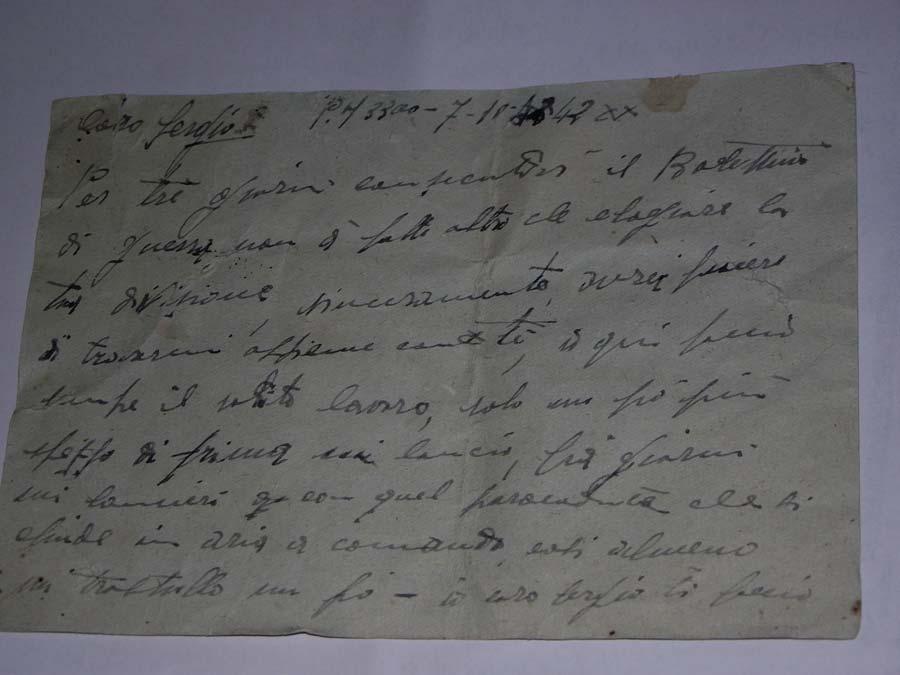 Caro Sergio P.M 3300 - 7-11-42 XX
Per tre giorni consecutivi il Bollettino
di guerra non à fatto altro che elogiare la
tua divisione, sinceramente, avrei piacere
di trovarmi assieme con te, io qui faccio
sempre il solito lavoro, solo un pò più
spesso di prima mi lancio, frà giorni
mi lancierò con quel paracadute che si
chiude in aria a comando, così almeno
mi trastullo un pò - io caro Sergio ti faccio